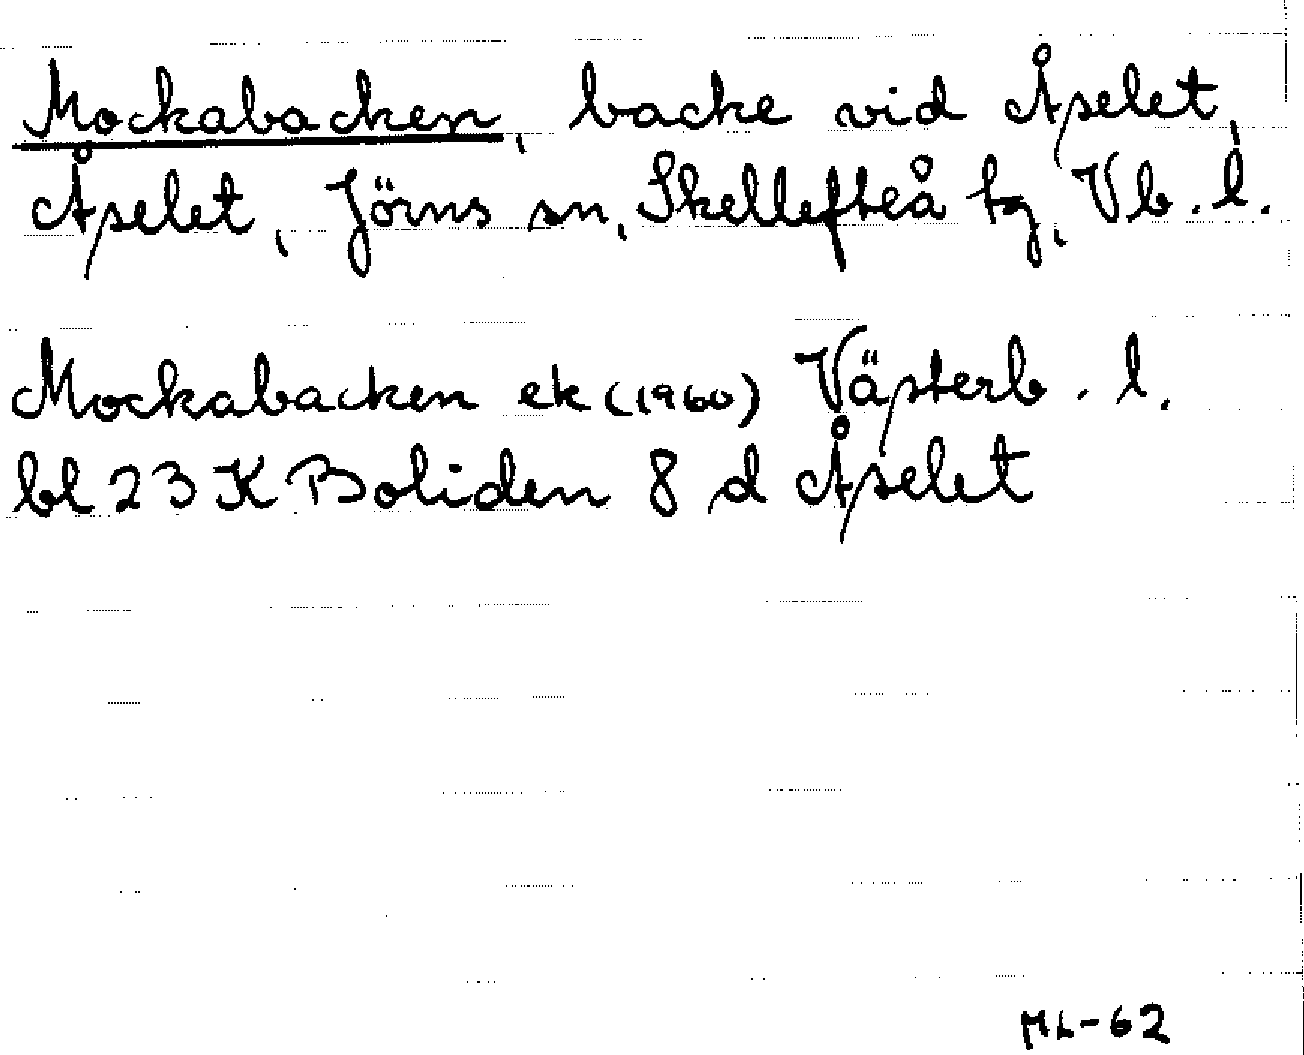 Mockabacken, backe vid Åselet,
Åselet, Jörns sn, Skellefteå tg, Vb. l.
Mockabacken ek (1960) Västerb. l.
bl 23 K Boliden 8 d Åselet
ML-62